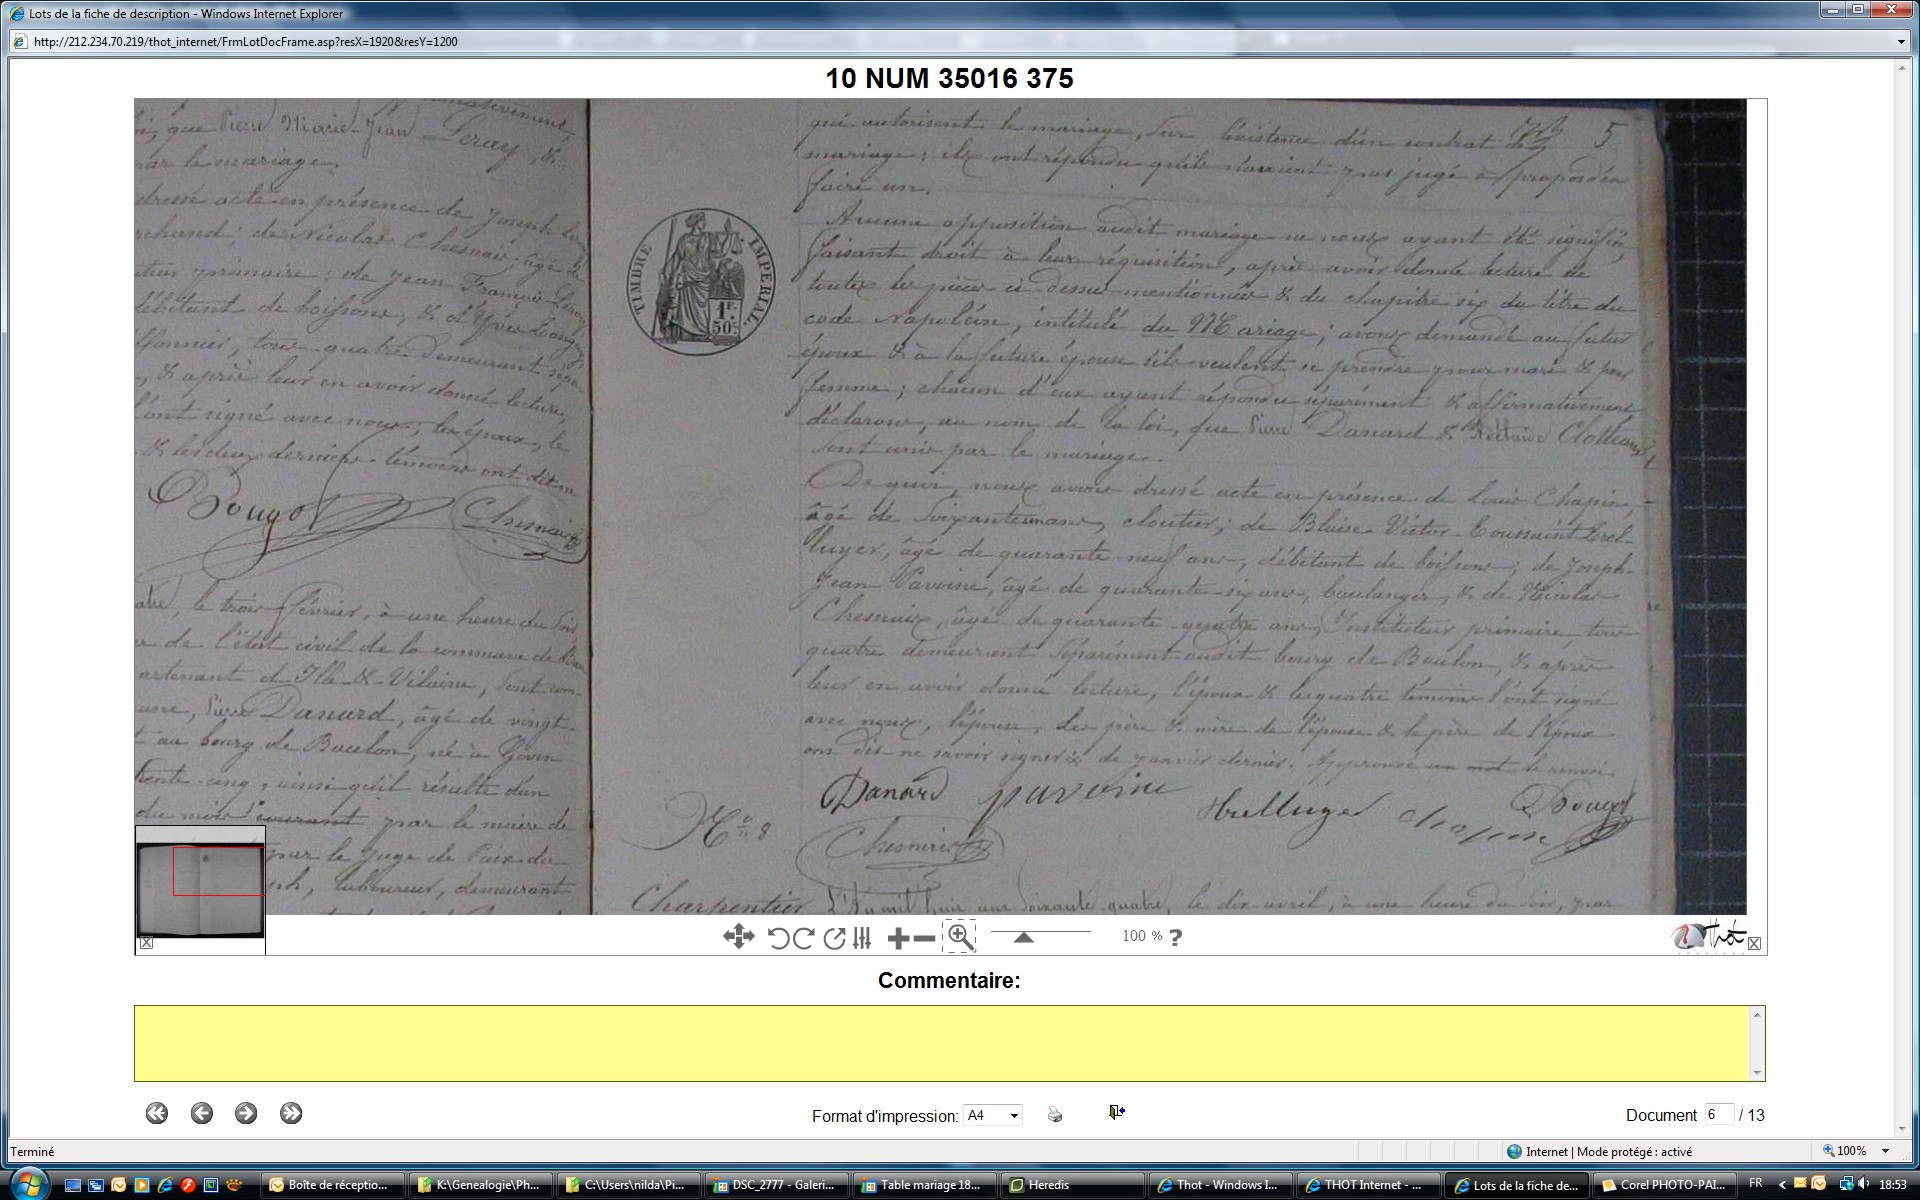 Lots de la fiche de description - Windows Internet Explorer
http://212.234.70.219/thot_internet/FrmLotDocFrame.asp?resX=1920&resY=1200
10 NUM 35016 375
que Pierre Marie-Jean Leray, &
par le mariage.
dressé acte en présence de Joseph
de Nicolas Chesnais, âgé de
primaire; de Jean François
débitant de boissons, & d'Yves
tous quatre demeurant
& après leur en avoir donné lecture,
l'ont signé avec nous; les époux, le
& les deux derniers témoins ont dit
Bougot
Chesnais
le trois février, à une heure du soir
de l'état civil de la commune de
d'Ille-&-Vilaine, sont
Pierre Danard, âgé de vingt-
au bourg de Baulon, né à Goven
trente-cinq, ainsi qu'il résulte d'un
du mois courant par le maire de
par le Juge de Paix du
laboureur, demeurant
TIMBRE IMPERIAL
1F.
50c.
5
qui autorisent le mariage, sur l'existence d'un contrat de
mariage: ils ont répondu qu'ils n'avaient pas jugé à propos d'en
faire un.
Aucune opposition audit mariage ne nous ayant été signifiée,
faisant droit à leur réquisition, après avoir donné lecture de
toutes les pièces ci dessus mentionnées & du chapitre six du titre du
code Napoléon, intitulé du Mariage; avons demandé au futur
époux & à la future épouse s'ils veulent se prendre pour mari & pour
femme; chacun d'eux ayant répondu séparément & affirmativement
déclarons, au nom de la loi, que Pierre Danard & Adélaïde Clotteaux
sont unis par le mariage.
De quoi, nous avons dressé acte en présence de Louis Chapin,
âgé de soixante un ans, cloutier; de Blaise Victor Toussaint
âgé de quarante-neuf ans, débitant de boissons; de Joseph-
Jean Pavoine, âgé de quarante-six ans, boulanger, & de Nicolas
Chesnais, âgé de quarante-quatre ans, Instituteur primaire, tous
quatre demeurant séparément audit bourg de Baulon, & après
leur en avoir donné lecture, l'époux & les quatre témoins l'ont signé
avec nous, l'épouse, les père & mère de l'épouse & le père de l'époux
ont dit ne savoir signer & de janvier dernier. Approuvé un mot le renvoi
Danard pavoine
Chapin Bougot
Chesnais
No 8
Charpentier
L'An mil huit cent soixante-quatre, le dix avril, à une heure du soir, par
100 % ?
Thot
Commentaire:
Format d'impression: A4
Document 6 / 13
Terminé
Internet | Mode protégé : activé
100%
Boîte de réceptio...
K:\Genealogie\Ph...
C:\Users\nilda\Pi...
DSC_2777 - Galeri...
Table mariage 18...
Heredis
Thot - Windows I...
THOT Internet - ...
Lots de la fiche de...
Corel PHOTO-PAI...
FR
18:53